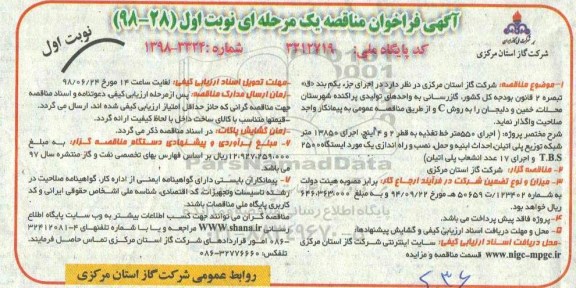 آگهی فراخوان مناقصه یک مرحله ای نوبت اول (۲۸-۹۸)
نوبت اول
کد پایگاه ملی: ۳۲۱۲۷۱۹ شماره: ۳۳۲۴-۱۳۹۸
شرکت گاز استان مرکزی
۱-موضوع مناقصه: شرکت گاز استان مرکزی در نظر دارد در اجرای جزء یکم بند «ق»
تبصره ۲ قانون بودجه کل کشور، گازرسانی به واحدهای تولیدی پراکنده شهرستان
محلات خمین و دلیجان را به روش C و از طریق مناقصه عمومی به پیمانکار واجد
صلاحیت واگذار نماید.
شرح مختصر پروژه: ( اجرای ۵۵۰متر خط تغذیه به قطر ۲ و ۴ اینچ، اجرای ۱۳۸۵۰ متر
شبکه توزیع پلی اتیلن، احداث ابنیه و حمل، نصب و راه اندازی یک مورد ایستگاه۲۵۰۰۰
T.B.S و اجرای ۱۷ عدد انشعاب پلی اتیلن)
۲-مناقصه گزار: شرکت گاز استان مرکزی
۳-میزان و نوع تضمین شرکت در فرآیند ارجاع کار: برابر مصوبه هیئت دولت
به شماره ۱۲۳۴۰۲/ت ۵۰۶۵۹ هـ مورخ ۹۴/۰۹/۲۲ به مبلغ
ریال خواهد بود.
۴-پروژه فاقد پیش پرداخت می باشد.
۵- محل و مهلت دریافت اسناد ارزیابی کیفی و گشایش پیشنهادها:
-محل دریافت اسناد ارزیابی کیفی: سایت اینترنتی شرکت گاز استان مرکزی
www.nigc-mpgc.ir قسمت مناقصه و مزایده
-مهلت تحویل اسناد ارزیابی کیفی: لغایت ساعت ۱۴ مورخ ۹۸/۰۶/۲۴
-زمان ارسال مدارک مناقصه: پس ازمرحله ارزیابی کیفی دعوتنامه و اسناد مناقصه
جهت مناقصه گرانی که حائز حداقل امتیاز ارزیابی کیفی شده اند، ارسال می گردد.
-قیمتها متناسب با کالای ساخت داخل با لحاظ کیفیت ارائه گردد.
-زمان گشایش پاکات: در اسناد مناقصه ذکر می گردد.
۶- مبلغ برآوردی و پیشنهادی دستگاه مناقصه گزار: به مبلغ
ریال بر اساس فهارس بهای تخصصی نفت و گاز منتشره سال ۹۷
می باشد.
۷- پیمانکاران بایستی دارای گواهینامه ایمنی از اداره کار، گواهینامه صلاحیت در
رشته تاسیسات وتجهیزات، کد اقتصادی، شناسه ملی اشخاص حقوقی ایرانی و کد
کاربری پایگاه ملی مناقصات باشند.
مناقصه گران می توانند جهت کسب اطلاعات بیشتر به وب سایت های
www.shana.ir مراجعه و یا با شماره تلفنهای ۴-۳۲۴۱۲۰۸۱
-۰۸۶ امور قراردادهای شرکت گاز استان مرکزی تماس حاصل فرمایند.
تلفکس: ۳۲۷۷۶۶۶۰-۰۸۶
روابط عمومی شرکت گاز استان مرکزی